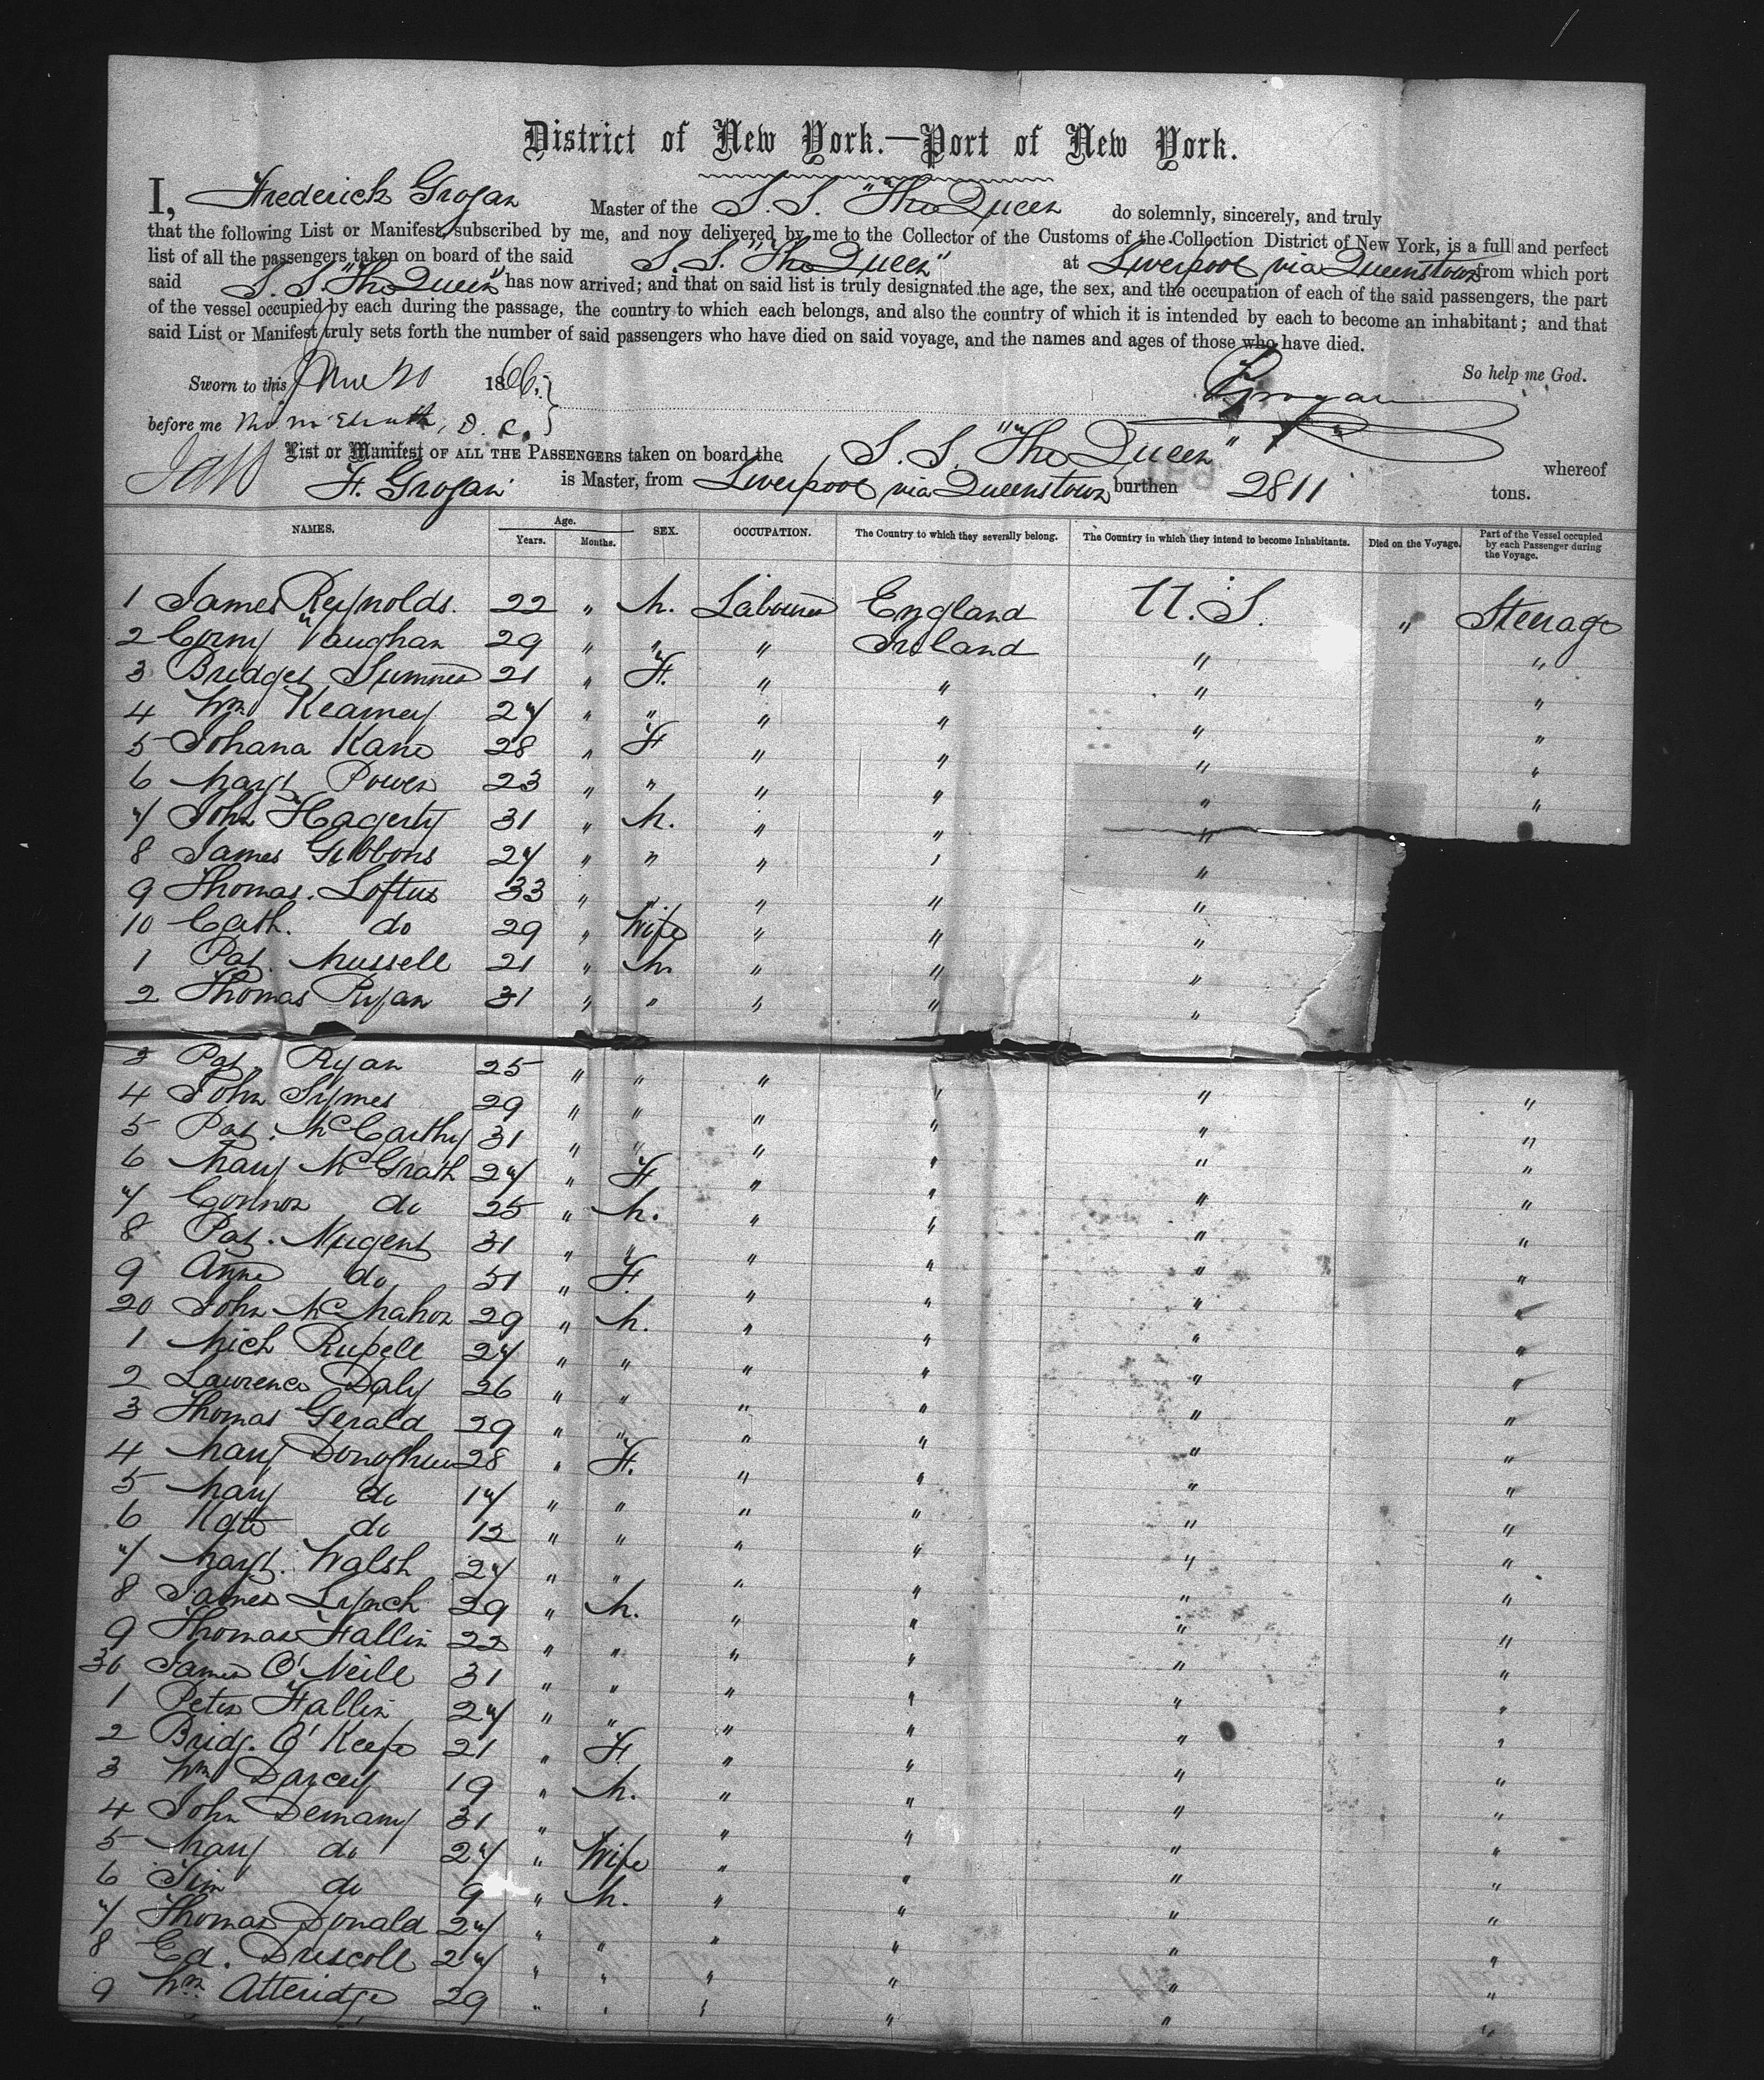 District of New York.—Port of New York.
I, Frederick Grogan Master of the S. S. "The Queen" do solemnly, sincerely, and truly
that the following List or Manifest, subscribed by me, and now delivered by me to the Collector of the Customs of the Collection District of New York, is a full and perfect
list of all the passengers taken on board of the said S. S. "The Queen" at Liverpool via Queenstown from which port
said S. S. "The Queen" has now arrived; and that on said list is truly designated the age, the sex, and the occupation of each of the said passengers, the part
of the vessel occupied by each during the passage, the country to which each belongs, and also the country of which it is intended by each to become an inhabitant; and that
said List or Manifest truly sets forth the number of said passengers who have died on said voyage, and the names and ages of those who have died.
So help me God.
Sworn to this June 20 1866. FGrogan
before me D. C.
List or Manifest OF ALL THE PASSENGERS taken on board the S. S. "The Queen" whereof
F. Grogan is Master, from Liverpool via Queenstown burthen 2811 tons.
NAMES. Age. Years. Months. SEX. OCCUPATION. The Country to which they severally belong. The Country in which they intend to become Inhabitants. Died on the Voyage. Part of the Vessel occupied by each Passenger during the Voyage.
1 James Reynolds. 22 " M. Labourer England U. S. " Steerage
2 Corny Vaughan 29 " " " Ireland " "
3 Bridget Sumner 21 " F. " " " "
4 Wm Kearney 27 " " " " " "
5 Johana Kane 28 " F " " " "
6 Margt Power 23 " " " " " "
7 John Hagerty 31 " M. " " "
8 James Gibbons 27 " " " " "
9 Thomas. Loftus 33 " " " " "
10 Cath. do 29 " Wife " " "
1 Pat. Mussell 21 " M " " "
2 Thomas Ryan 31 " " " " "
3 Pat Ryan 25 " " " " " "
4 John Symes 29 " " " " " "
5 Pat. McCarthy 31 " " " " " "
6 Mary McGrath 27 " F " " " "
7 Connor do 25 " M. " " " "
8 Pat. Nugent 31 " " " " " "
9 Anne do 51 " F. " " " "
20 John McMahon 29 " M. " " " "
1 Mich Russell 27 " " " " " "
2 Lawrence Daly 26 " " " " " "
3 Thomas Gerald 29 " " " " " "
4 Mary Donoghue 28 " F. " " " "
5 Mary do 17 " " " " " "
6 Kate do 12 " " " " " "
7 Margt. Walsh 27 " " " " " "
8 James Lynch 29 " M. " " " "
9 Thomas Fallin 22 " " " " " "
30 James O'Neile 31 " " " " " "
1 Peter Fallin 27 " " " " " "
2 Bridg. O'Keefe 21 " F " " " "
3 Wm Darcey 19 " M. " " " "
4 John Demamy 31 " " " " "
5 Mary do 27 " Wife " " " "
6 Tim do 9 " M. " " " "
7 Thomas Donald 27 " " " " " "
8 Ed. Driscoll 27 " " " " " "
9 Wm Atteridge 29 " " " " " "